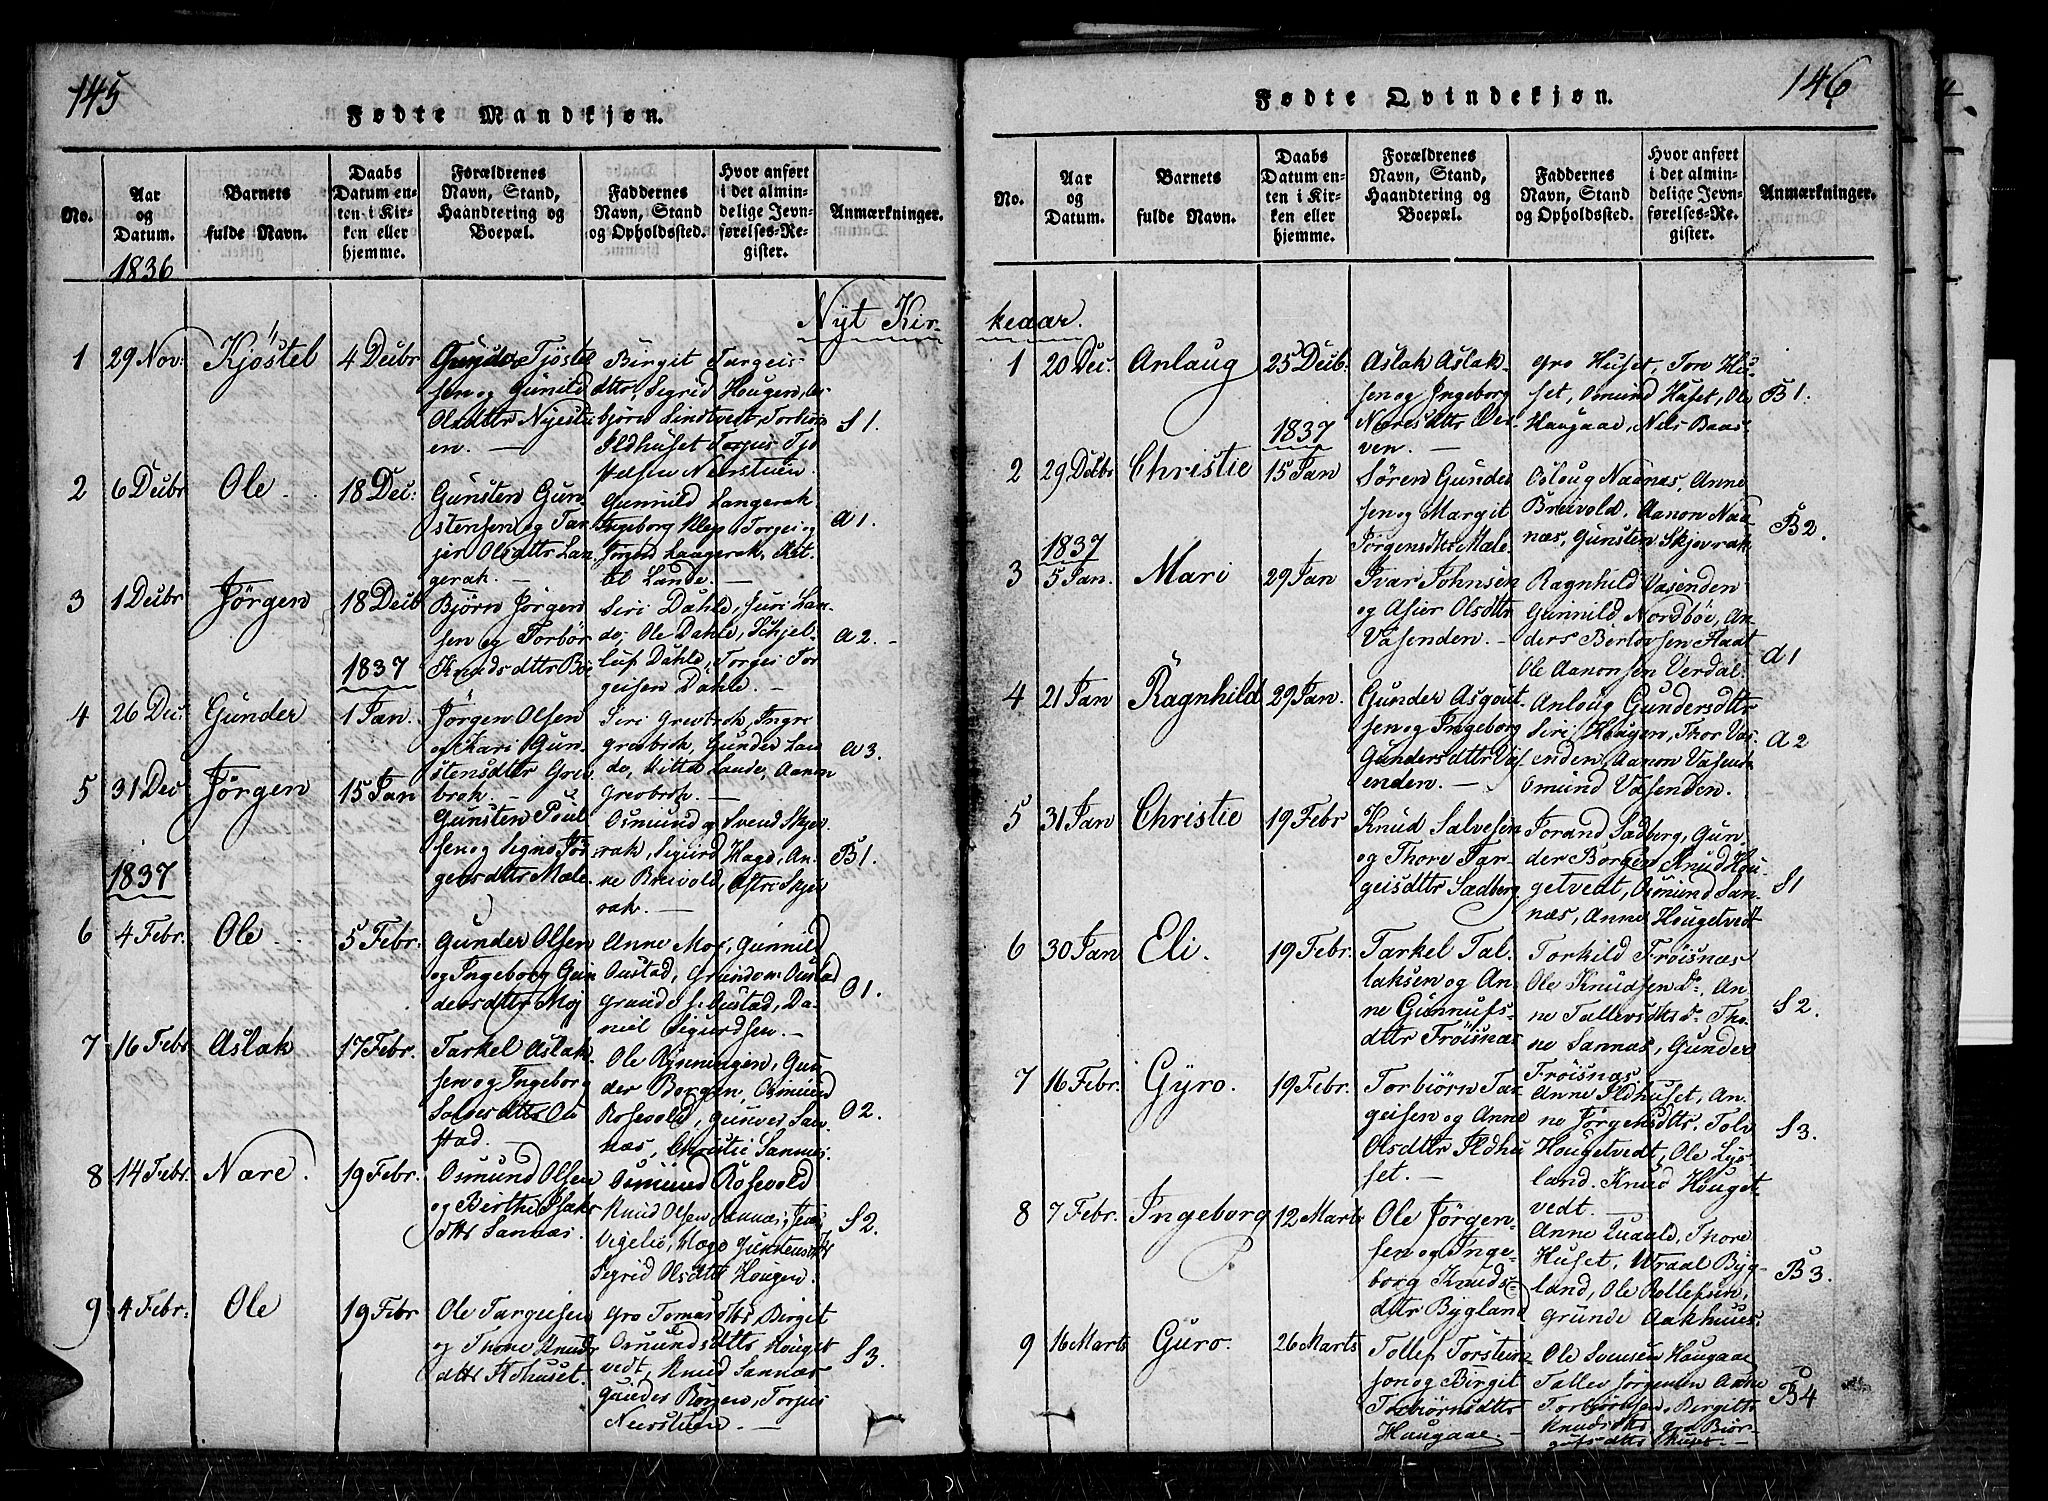 145
Fødte Mandkjøn.
No.
Aar og Datum.
Barnets fulde Navn.
Daabs Datum enten i Kirken eller hjemme.
Forældrenes Navn, Stand, Haandtering og Boepæl.
Faddernes Navn, Stand og Opholdssted.
Hvor anført i det almindelige Jevnførelses-Register.
Anmærkninger.
1836
Nyt Kir-
1 29 Nov: Kjøstel 4 Decbr
Tjøstel
sen og Gunild
Olsdttr Nyestu
en. —
Birgit Targeis-
dttr, Sigrid Hougen,
bjørn Sindtvedt, Torbiørn
Ildhuset Torjus
Neerstuen.
S 1.
2 6 Decbr Ole 18 Dec:
Gunsten Gun-
stensen og Tar-
jer Olsdttr Lan-
gerak. —
Gunnild Langerak
Ingeborg Torgei og
Jørgen Langerak, Ket-
til Lande. —
a 1.
3 1 Decbr Jørgen 18 Decb
Bjørn Jørgen
sen og Torbør
Knudsdttr
1837
Siri Dahle, Juri Lan-
de, Ole Dahle, Schjel-
luf Dahle, Torgei Tor-
geisen Dahle. —
a 2.
4 26 Dec: Gunder 1 Jan.
Jørgen Olsen
og Kari Gun-
stensdttr Grei-
brok. —
Siri Greibrok, Ingre
Greibrok, Gunder Lan-
de, Kittel Lande, Aanon
Greibrok. —
a 3.
5 31 Dec Jørgen 15 Jan
Gunsten Poul-
sen og Signe Jør-
gensdttr Mæle.
Osmund og Svend Skjev-
rak, Sigurd Hage, An-
ne Breivold, Skjev-
rak. —
B 1.
1837
6 4 Febr. Ole 5 Febr.
Gunder Olsen
og Ingeborg Gun-
dersdttr Moj
Anne Moi, Gunnild
Oustad, Oustad
Oustad, Da-
niel Sigurdsen. —
O 1.
7 16 Febr Aslak 17 Febr.
Tarkel Aslak-
sen og Ingeborg
Salvesdttr Ou-
stad.
Ole Rynningen, Gun-
der Borgen, Osmund
Rosevold, Gunver San-
næs, Christie Sannæs.
O 2.
8 14 Febr. Nære. 19 Febr.
Osmund Olsen
og Birthe Isaks
dttr Sannæs.
Osmund Rosevold
Knud Olsen Sannæs,
Sigrid Olsdttr Hougen.
S 2.
9 4 Febr: Ole 19 Febr
Ole Targeisen
og Thone Knuds
dttr Ildhuset.
Gro Tomasdttr, Birgit
Osmundsdttr Houget
vedt, Knud Sannæs
Gunder Borgen, Torjus
Neerstuen —
S 3.
146
Fødte Qvindekjøn.
No.
Aar og Datum.
Barnets fulde Navn.
Daabs Datum enten i Kirken eller hjemme.
Forældrenes Navn, Stand, Haandtering og Boepæl.
Faddernes Navn, Stand og Opholdssted.
Hvor anført i det almindelige Jevnførelses-Register.
Anmærkninger.
keaar.
1 20 Dec. Anlaug 25 Decb:
Aslak Aslak-
sen og Ingeborg
Næresdttr Ose-
ven. —
1837
Gro Huset, Ton Hu-
set, Osmund Huset, Ole
Haugaae, Nils Baas-
ven.
B 1.
2 29 Decbr Christie 15 Jan
Søren Gunder
sen og Margit
Jørgensdttr Mæle.
Osloug Naanæs, Anne
Breivold, Aanon Naa-
næs, Gunsten Skjevrak
B 2.
1837
3 5 Jan. Mari 29 Jan
Ivar Johnsen
og Asier Olsdttr
Vasenden. —
Ragnhild Vasenden
Gunnild Nordbøe, An-
ders Berlovsen Flaat
Ole Aanonsen Verdal.
a 1
4 21 Jan Ragnhild 29 Jan.
Gunder Asgout-
sen og Ingeborg
Gundersdttr Vas-
enden. —
Anloug Gundersdttr
Siri Hougen, Thor Vas-
enden Aanon Vasend-
Omund Vasenden.
a 2
5 31 Jan Christie 19 Febr
Knud Salvesen
og Thore Tar-
geisdttr Sædberg
Jorand Sædberg, Gun-
der Borgen Knud Hou-
getvedt, Osmund San-
næs, Anne Hougetvedt
S 1
6 30 Jan Eli. 19 Febr.
Tarkel Tal-
laksen og An-
ne Gunnufs-
dttr Frøisnæs
Torkild Frøisnæs
Ole Knudsen do. An-
ne Tallevsdttr do. Tho-
ne Sannæs, Gunder
Frøisnæs
S 2.
7 16 Febr. Gyro. 19 Febr.
Torbiørn Tar-
geisen og Anne
Olsdttr Ildhu
set. —
Anne Ildhuset, An-
ne Jørgensdttr, Tolv
Hougetvedt, Ole Lys-
land. Knud Houget-
vedt. —
S 3.
8 7 Febr. Ingeborg 12 Marts
Ole Jørgen-
sen og Inge-
borg Knuds-
dttr Bygland
Anne Thore
Huset, Wraal Byg-
land, Ole Rollefsen,
Grunde Aakhuus.
B 3.
9 16 Marts Guro. 26 Marts
Tollef Torstein-
son og Birgit
Torbiørnsdttr
Haugaae. —
Ole Svensen Haugaae
Tallev Jørgensen
Torbiørnsen, Birgitte
Knudsdttr, Gro Biør-
gufsdttr Huset. —
B 4